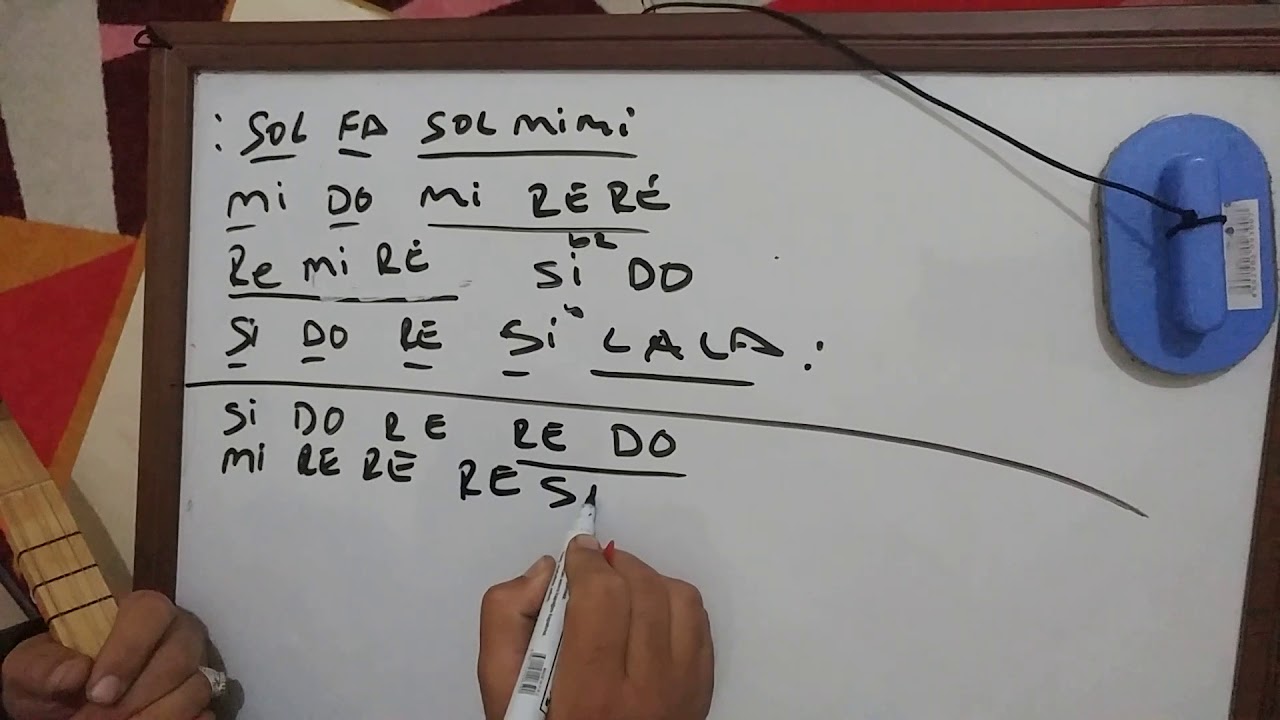 : SOL FA SOL MİMİ
Mİ DO Mİ RERÉ
Re Mİ RE Sİb2 DO
Sİ DO RE Sİb LALA :
Sİ DO RE RE DO
Mİ RE RE RE Sİ